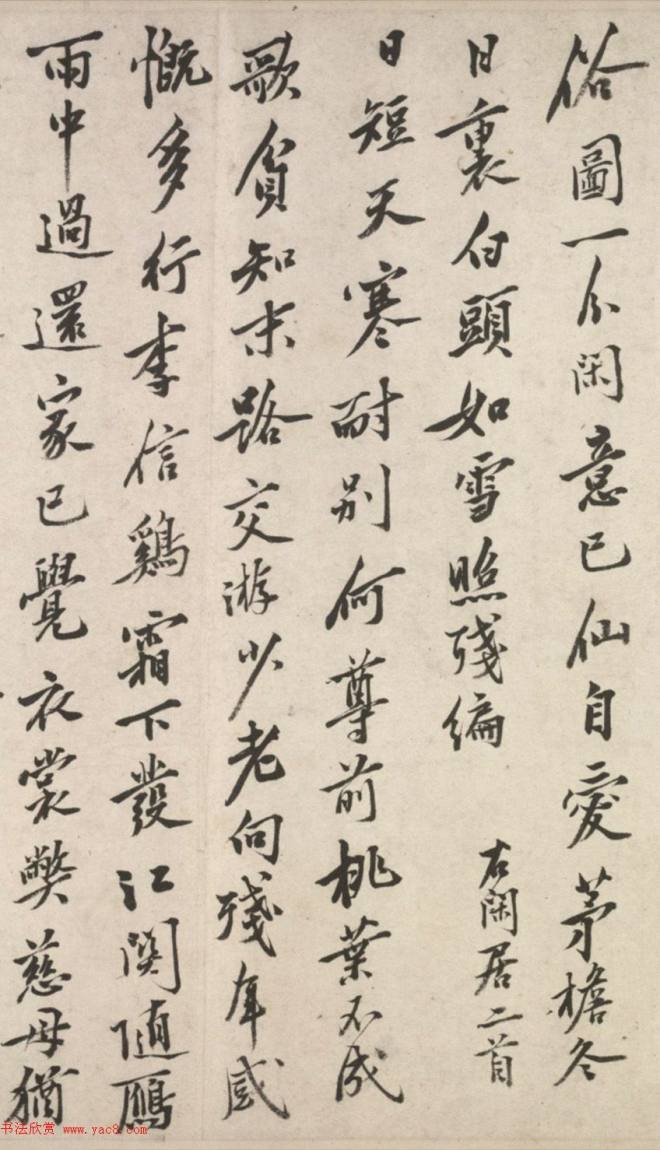 俗圖一分閑意已仙自愛茅檐冬
日裏白頭如雪照殘編
右閑居二首
日短天寒耐別何尊前桃葉不成
歌貧知末路交游少老向殘年感
慨多行李信鷄霜下發江關隨鴈
雨中過還家已覺衣裳獘慈母猶
书法欣赏 www.yac8.com